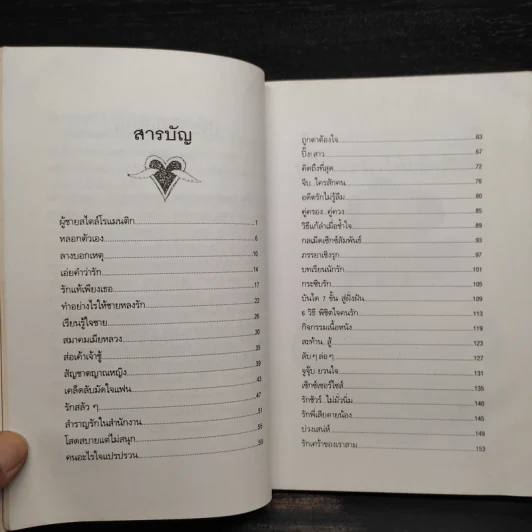 สารบัญ
ผู้ชายสไตล์โรแมนติก 1
หลอกตัวเอง 6
ลางบอกเหตุ 10
เอ่ยคำว่ารัก 14
รักแท้เพียงเธอ 17
ทำอย่างไรให้ชายหลงรัก 22
เรียนรู้ใจชาย 26
สมาคมเมียหลวง 30
ส่อเค้าเจ้าชู้ 35
สัญชาตญาณหญิง 39
เคล็ดลับมัดใจแฟน 43
รักสลัว ๆ 47
สำราญรักในสำนักงาน 51
โสดสบายแต่ไม่สนุก 55
คนอะไรใจแปรปรวน 59
ถูกตาต้องใจ 63
ปิ๊ง! สาว 67
คิดถึงที่สุด 72
จีบ...ใครสักคน 76
อดีตรักไม่รู้ลืม 80
คู่ครอง...คู่ควง 85
วิธีแก้ลำเมื่อช้ำใจ 89
กลเม็ดเซ็กซ์สัมพันธ์ 93
ภรรยาเชิงรุก 97
บทเรียนนักรัก 101
กระซิบรัก 105
บันได 7 ขั้น สู่ฝั่งฝัน 109
6 วิธี พิชิตใจคนรัก 113
กิจกรรมเนื้อหนัง 119
สะท้าน...สู้ 123
ลับๆล่อๆ 127
จูจุ๊บ ยวนใจ 131
เซ็กซ์เซอร์ไซส์ 135
รักชัวร์...ไม่มั่วนิ่ม 140
รักพี่เสียดายน้อง 145
บ่วงเสน่ห์ 149
รักเศร้าของเราสาม 153